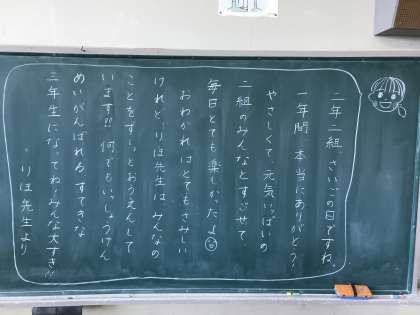 二年二組、さいごの日ですね。
一年間、本当にありがとう!
やさしくて、元気いっぱいの
二組のみんなとすごせて、
毎日とても楽しかったよ
おわかれはとてもさみしい
けれど、りほ先生はみんなの
ことをずーっとおうえんして
います!!何でもいっしょうけん
めいがんばれる、すてきな
三年生になってね!みんな大すき!!
りほ先生より